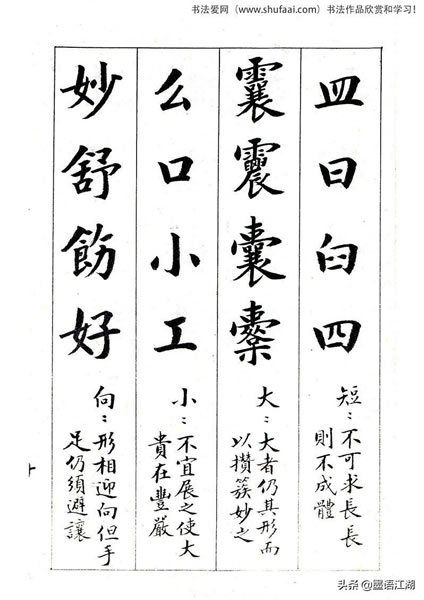 书法爱网(www.shufaai.com)书法作品欣赏和学习!
皿曰臼四
短：不可求長長
則不成體
囊橐
大：大者仍其形而
以攢簇妙之
么口小工
小：不宜展之使大
貴在豐嚴
妙舒飭好
向：形相迎向但手
足仍須避讓
头条@墨语江湖